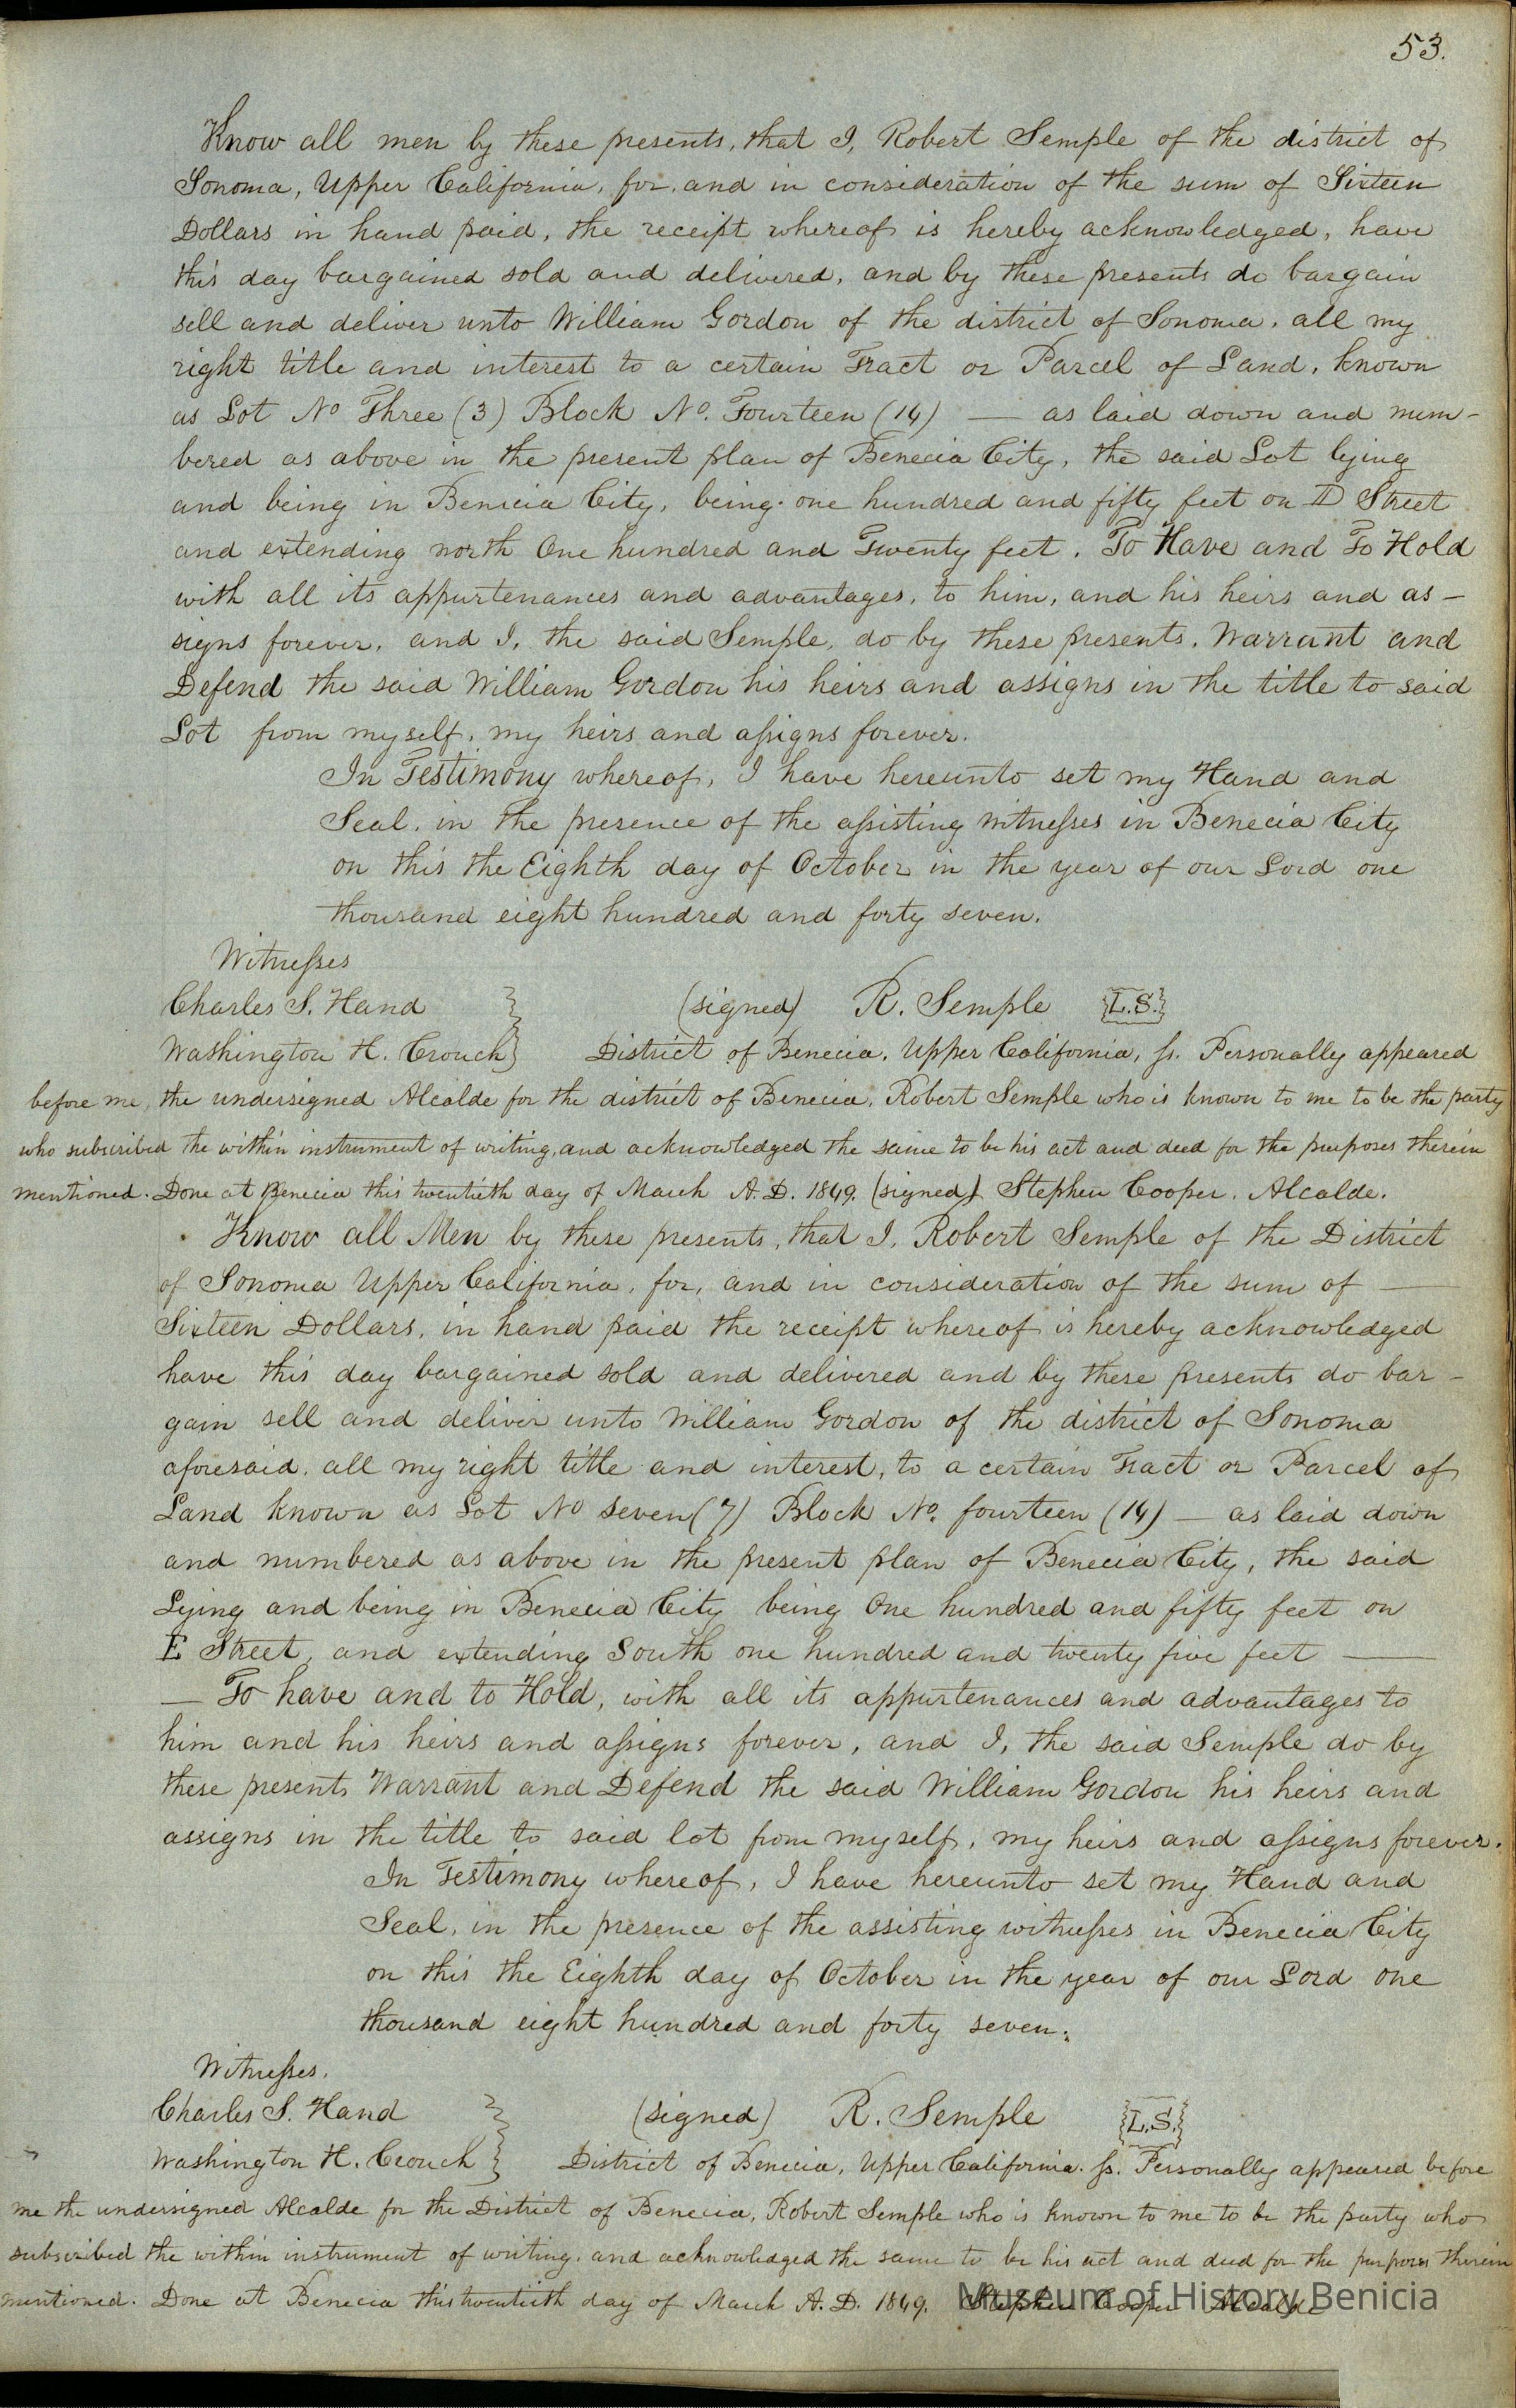 53.
Know all men by these presents, that I, Robert Semple of the district of
Sonoma, Upper California, for, and in consideration of the sum of Sixteen
Dollars in hand paid, the receipt whereof is hereby acknowledged, have
this day bargained sold and delivered, and by these presents do bargain
sell and deliver unto William Gordon of the district of Sonoma, all my
right title and interest to a certain Tract or Parcel of Land, known
as Lot No Three (3) Block No. Fourteen (14) — as laid down and num-
bered as above in the present plan of Benecia City, the said Lot lying
and being in Benicia City, being one hundred and fifty feet on D Street
and extending north One hundred and Twenty feet. To Have and To Hold
with all its appurtenances and advantages, to him, and his heirs and as-
signs forever, and I, the said Semple, do by these presents, Warrant and
Defend the said William Gordon his heirs and assigns in the title to said
Lot from myself, my heirs and assigns forever.
In Testimony whereof, I have hereunto set my Hand and
Seal, in the presence of the assisting witnesses in Benecia City
on this the Eighth day of October in the year of our Lord one
thousand eight hundred and forty seven.
Witnesses
Charles S. Hand } (signed) R. Semple {L.S.}
Washington H. Crouch } District of Benecia, Upper California, ss. Personally appeared
before me, the undersigned Alcalde for the district of Benecia, Robert Semple who is known to me to be the party
who subscribed the within instrument of writing, and acknowledged the same to be his act and deed for the purposes therein
mentioned. Done at Benecia this twentieth day of March A.D. 1849. (signed) Stephen Cooper. Alcalde.
Know all Men by these presents, that I, Robert Semple of the District
of Sonoma Upper California, for, and in consideration of the sum of —
Sixteen Dollars, in hand paid the receipt whereof is hereby acknowledged
have this day bargained sold and delivered and by these presents do bar-
gain sell and deliver unto William Gordon of the district of Sonoma
aforesaid, all my right title and interest, to a certain Tract or Parcel of
Land known as Lot No seven (7) Block No. fourteen (14) — as laid down
and numbered as above in the present plan of Benecia City, the said
Lying and being in Benecia City being One hundred and fifty feet on
E Street, and extending South one hundred and twenty five feet —
— To have and to Hold, with all its appurtenances and advantages to
him and his heirs and assigns forever, and I, the said Semple do by
these presents Warrant and Defend the said William Gordon his heirs and
assigns in the title to said lot from myself, my heirs and assigns forever.
In Testimony whereof, I have hereunto set my Hand and
Seal, in the presence of the assisting witnesses in Benecia City
on this the Eighth day of October in the year of our Lord one
thousand eight hundred and forty seven.
Witnesses.
Charles S. Hand } (signed) R. Semple {L.S.}
Washington H. Crouch } District of Benecia, Upper California. ss. Personally appeared before
me the undersigned Alcalde for the District of Benecia, Robert Semple who is known to me to be the party who
subscribed the within instrument of writing, and acknowledged the same to be his act and deed for the purposes therein
mentioned. Done at Benecia this twentieth day of March A.D. 1849. Stephen Cooper Alcalde
Museum of History Benicia